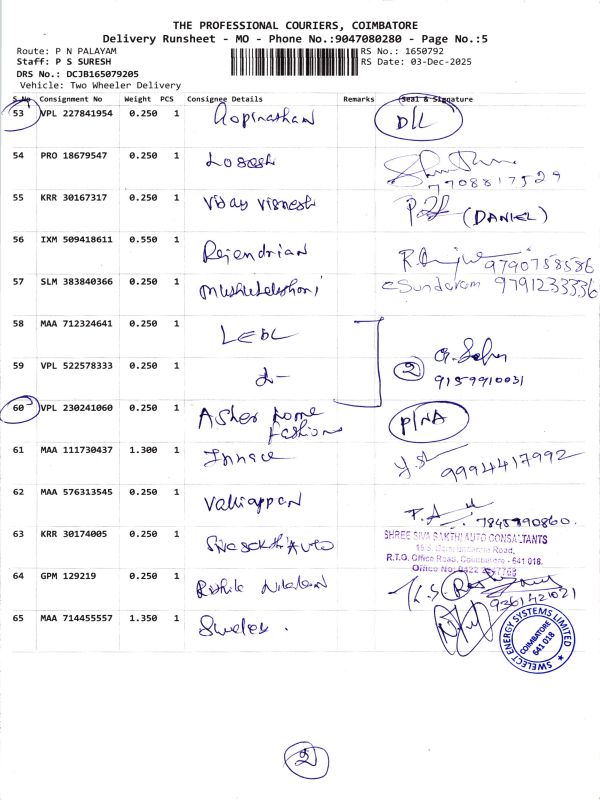 THE PROFESSIONAL COURIERS, COIMBATORE
Delivery Runsheet - MO - Phone No.:9047080280 - Page No.:5
Route: P N PALAYAM
Staff: P S SURESH
DRS No.: DCJB165079205
Vehicle: Two Wheeler Delivery
RS No.: 1650792
RS Date: 03-Dec-2025
S.No Consignment No Weight PCS Consignee Details Remarks Seal & Signature
53 VPL 227841954 0.250 1 Gopinathan D/L
54 PRO 18679547 0.250 1 7708817529
55 KRR 30167317 0.250 1 Vijay Vignesh (DANIEL)
56 IXM 509418611 0.550 1 Rajendrian 9790758586
57 SLM 383840366 0.250 1 Sundaram 9791233336
58 MAA 712324641 0.250 1
59 VPL 522578333 0.250 1 2 9159910031
60 VPL 230241060 0.250 1 Asher Home Fashion P/NA
61 MAA 111730437 1.300 1 9994417992
62 MAA 576313545 0.250 1 Valliappan 7845990860.
63 KRR 30174005 0.250 1 Sivasakthi Auto
SHREE SIVA SAKTHI AUTO CONSULTANTS
R.T.O. Office Road, Coimbatore - 641 018.
64 GPM 129219 0.250 1 9361421021
65 MAA 714455557 1.350 1
SWELECT ENERGY SYSTEMS LIMITED
COIMBATORE
641 018
2